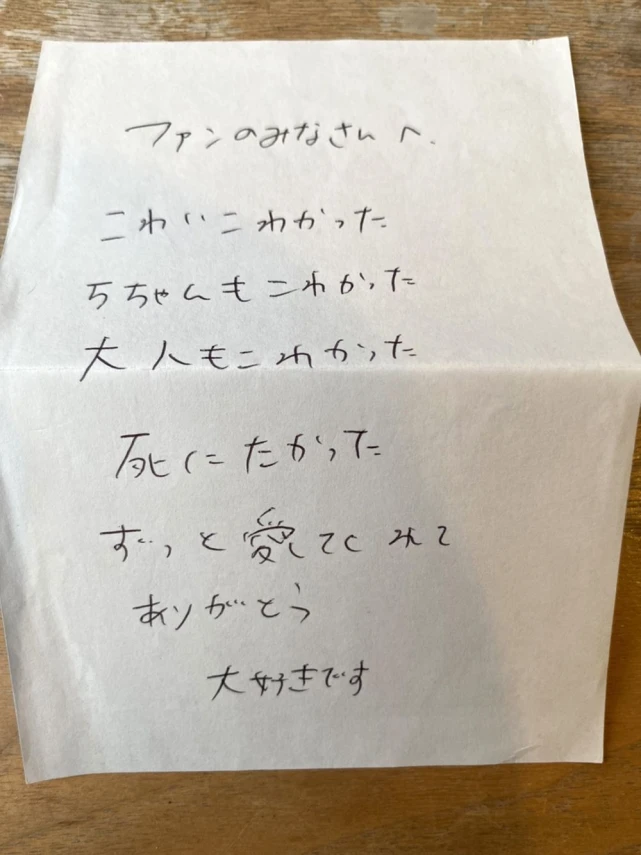 ファンのみなさんへ.
こわいこわかった
5ちゃんもこわかった
大人もこわかった
死にたかった
ずっと愛してくれて
ありがとう
大好きです